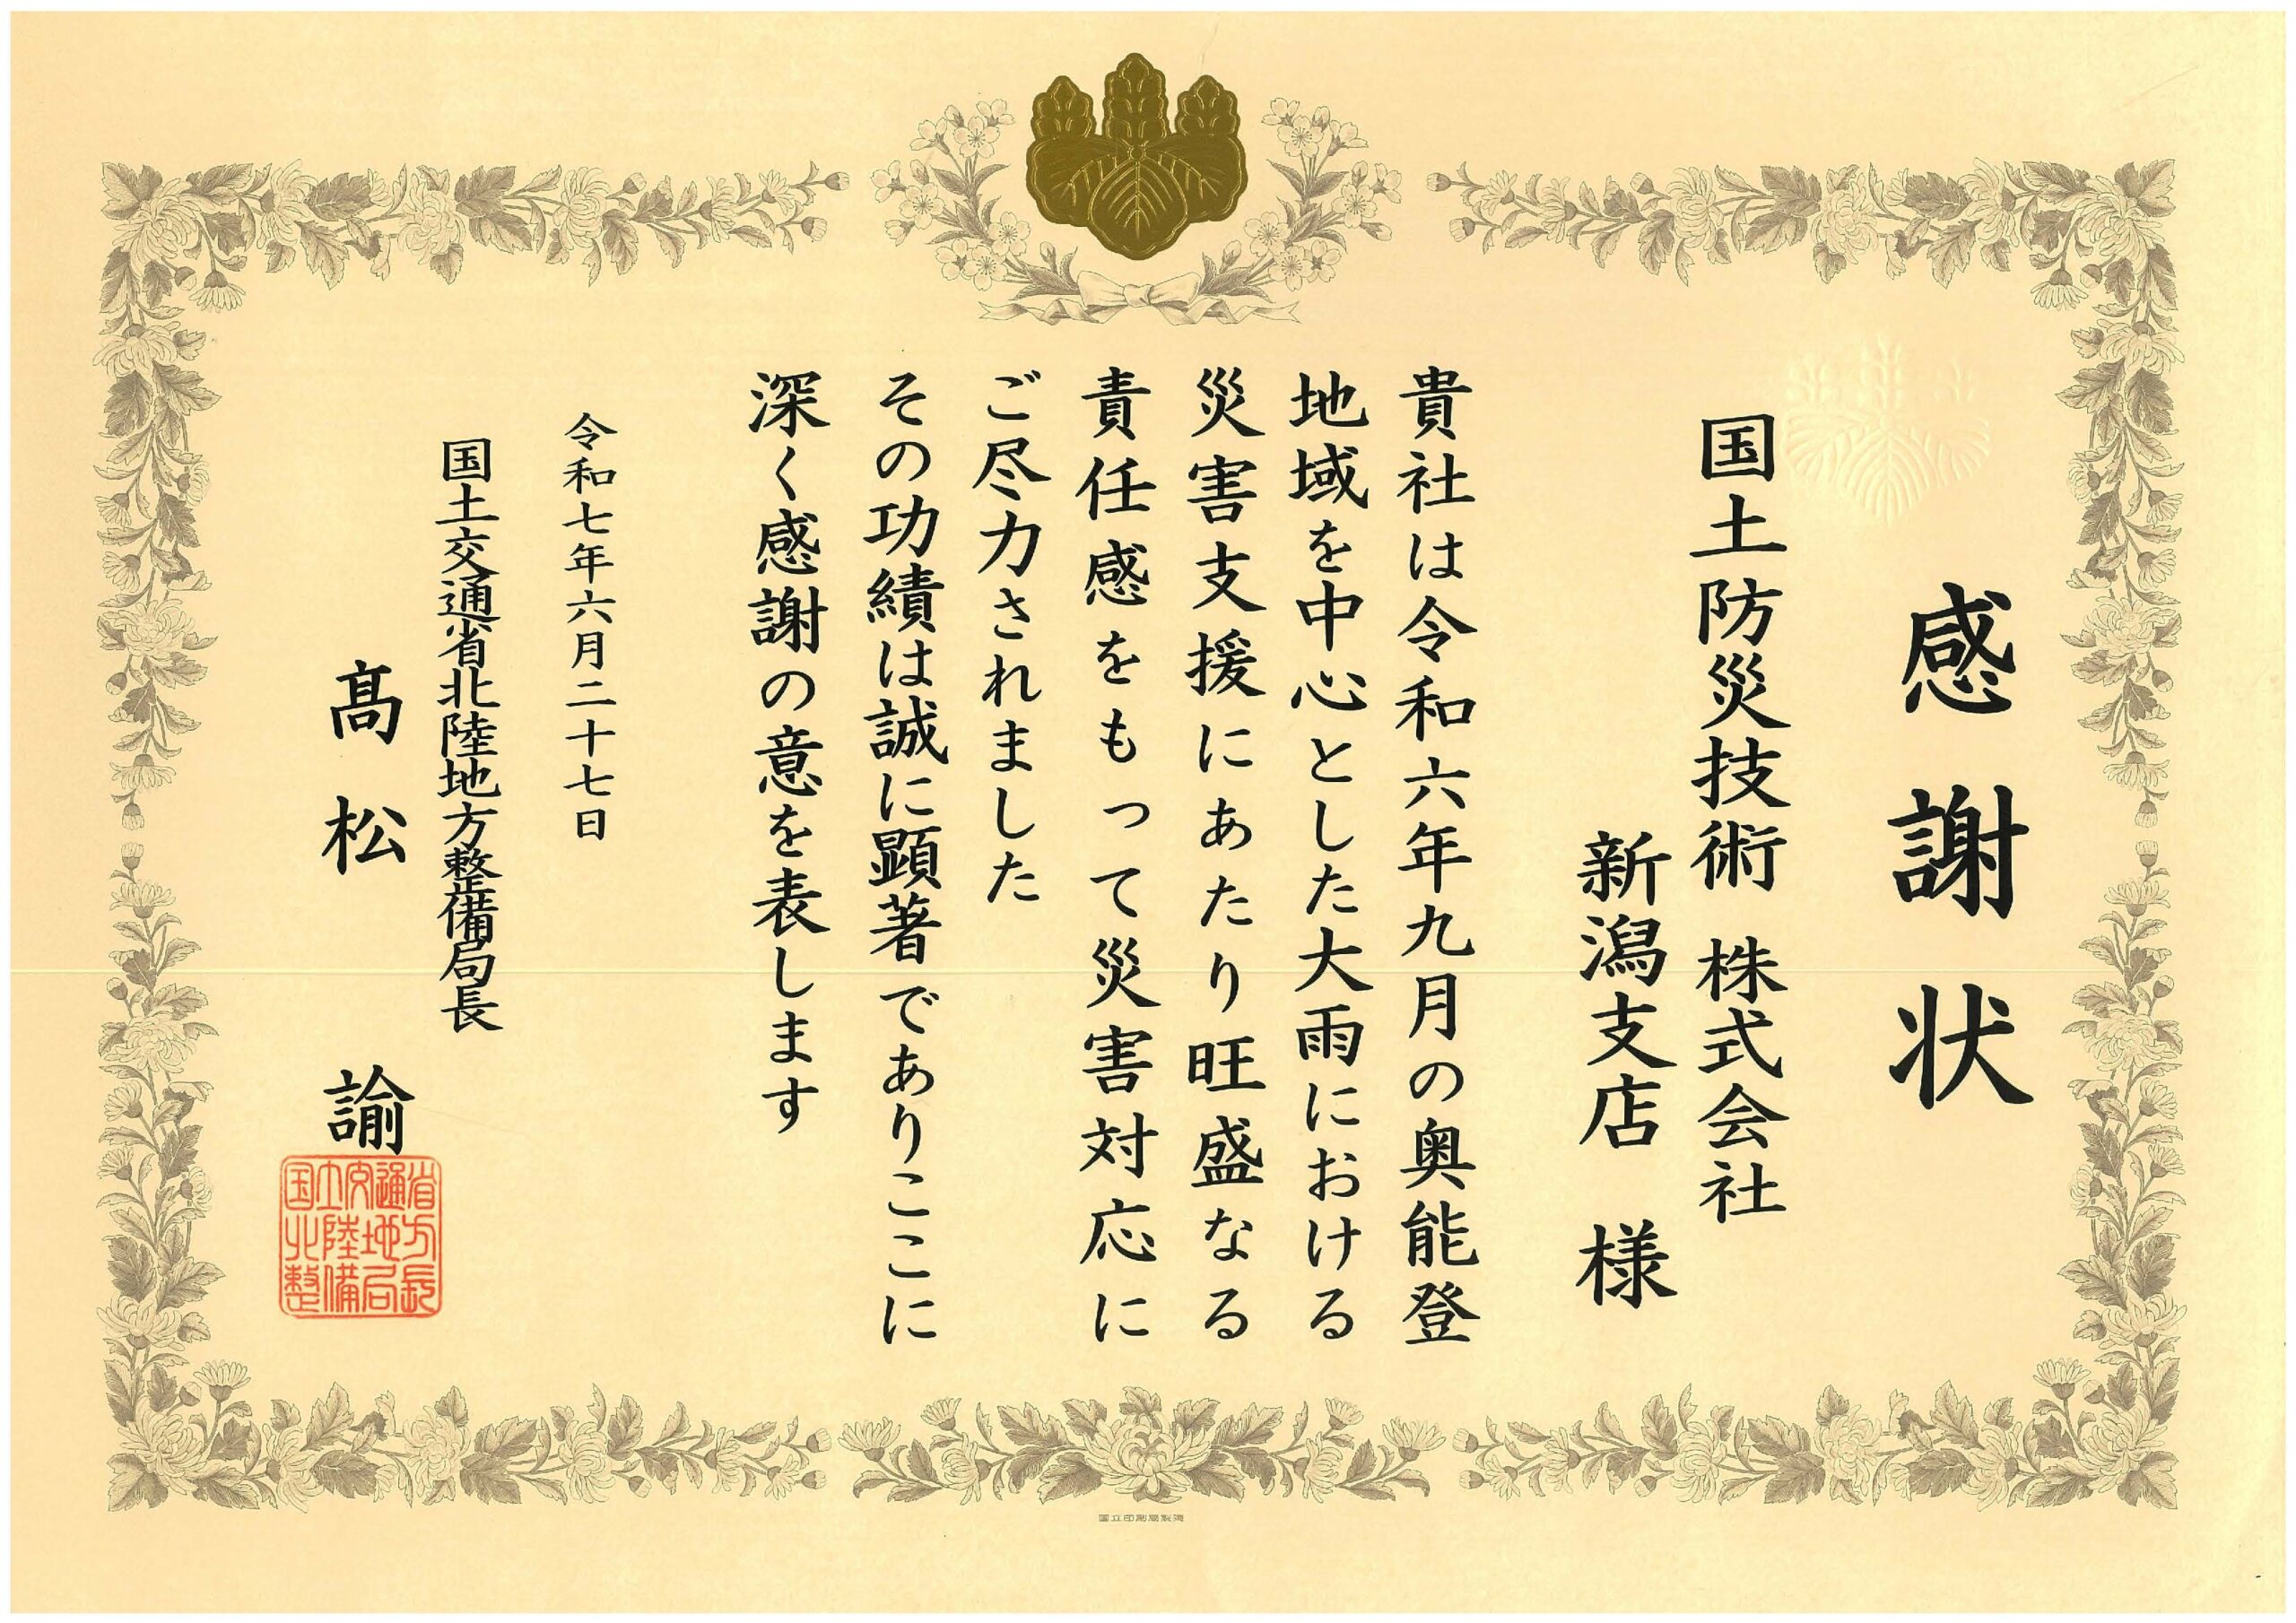 感謝状
国土防災技術 株式会社
新潟支店 様
貴社は令和六年九月の奥能登
地域を中心とした大雨における
災害支援にあたり旺盛なる
責任感をもって災害対応に
ご尽力されました
その功績は誠に顕著でありここに
深く感謝の意を表します
令和七年六月二十七日
国土交通省北陸地方整備局長
髙松 諭
国土交通省
北陸地方
整備局長
国立印刷局製造